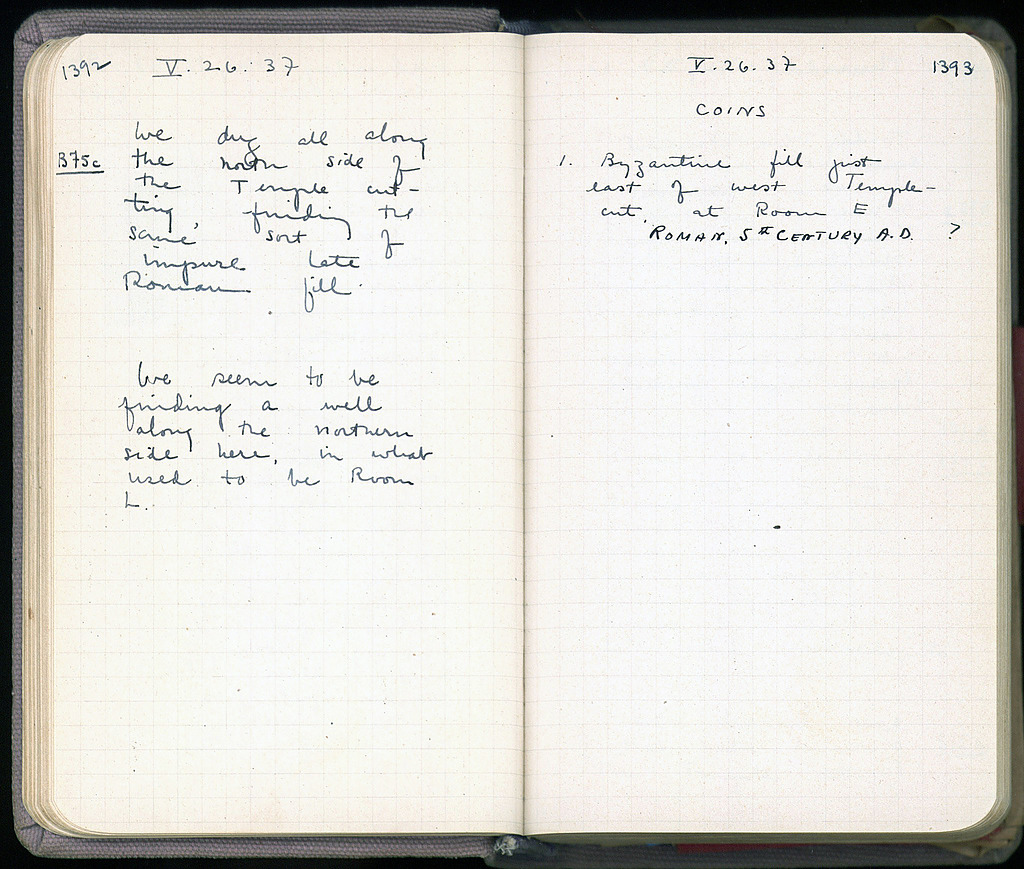 1392 V. 26. 37
We dug all along
B75c the north side of
the Temple cut-
ting, finding the
same sort of
impure late
Roman fill.
We seem to be
finding a well
along the northern
side here, in what
used to be Room
L.
V. 26. 37 1393
COINS
1. Byzantine fill just
east of west Temple-
cut, at Room E
ROMAN, 5th CENTURY A.D. ?